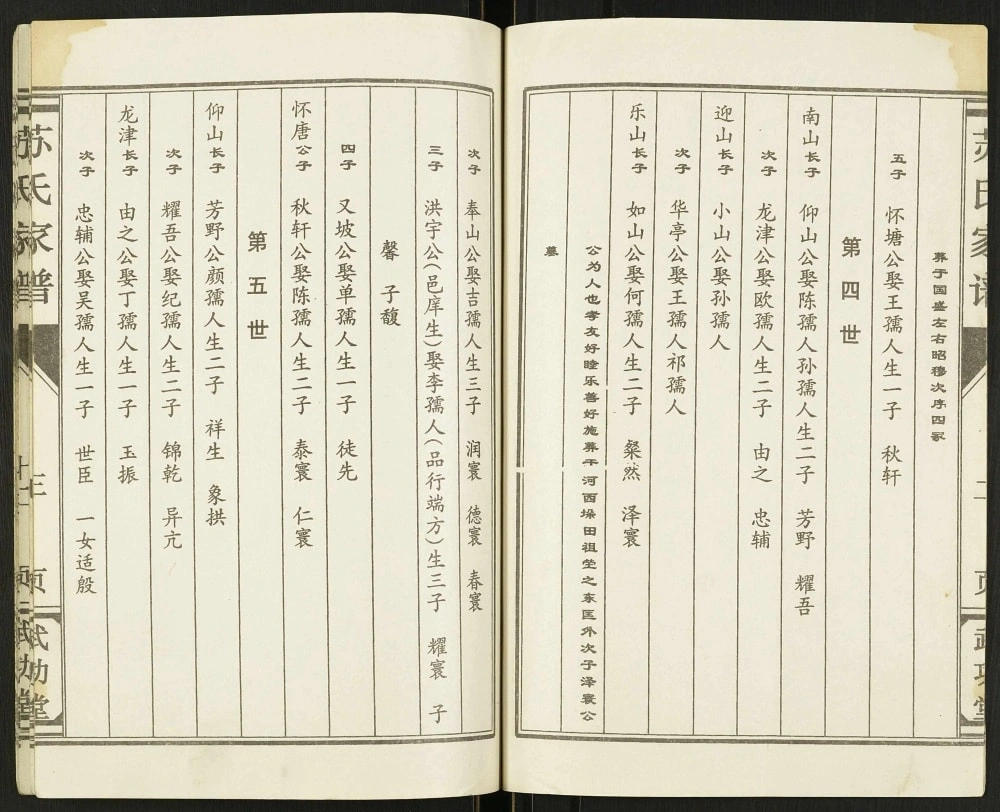 二
葬于国盛左右昭穆次序四冢
五子 怀塘公娶王孺人生一子 秋轩
第四世
南山长子 仰山公娶陈孺人孙孺人生二子 芳野 耀吾
次子 龙津公娶欧孺人生二子 由之 忠辅
迎山长子 小山公娶孙孺人
次子 华亭公娶王孺人祁孺人
乐山长子 如山公娶何孺人生二子 粲然 泽寰
公为人也孝友好睦乐善好施葬于河西垛田祖茔之东匡外次子泽寰公
墓
次子 奉山公娶吉孺人生三子 润寰 德寰 春寰
三子 洪宇公(邑庠生)娶李孺人(品行端方)生三子 耀寰 子
馨 子馥
四子 又坡公娶单孺人生一子 徒先
怀唐公子 秋轩公娶陈孺人生二子 泰寰 仁寰
第五世
仰山长子 芳野公颜孺人生二子 祥生 象拱
次子 耀吾公娶纪孺人生二子 锦乾 异亢
龙津长子 由之公娶丁孺人生一子 玉振
次子 忠辅公娶吴孺人生一子 世臣 一女适殷
苏氏家谱
三
页
武功堂